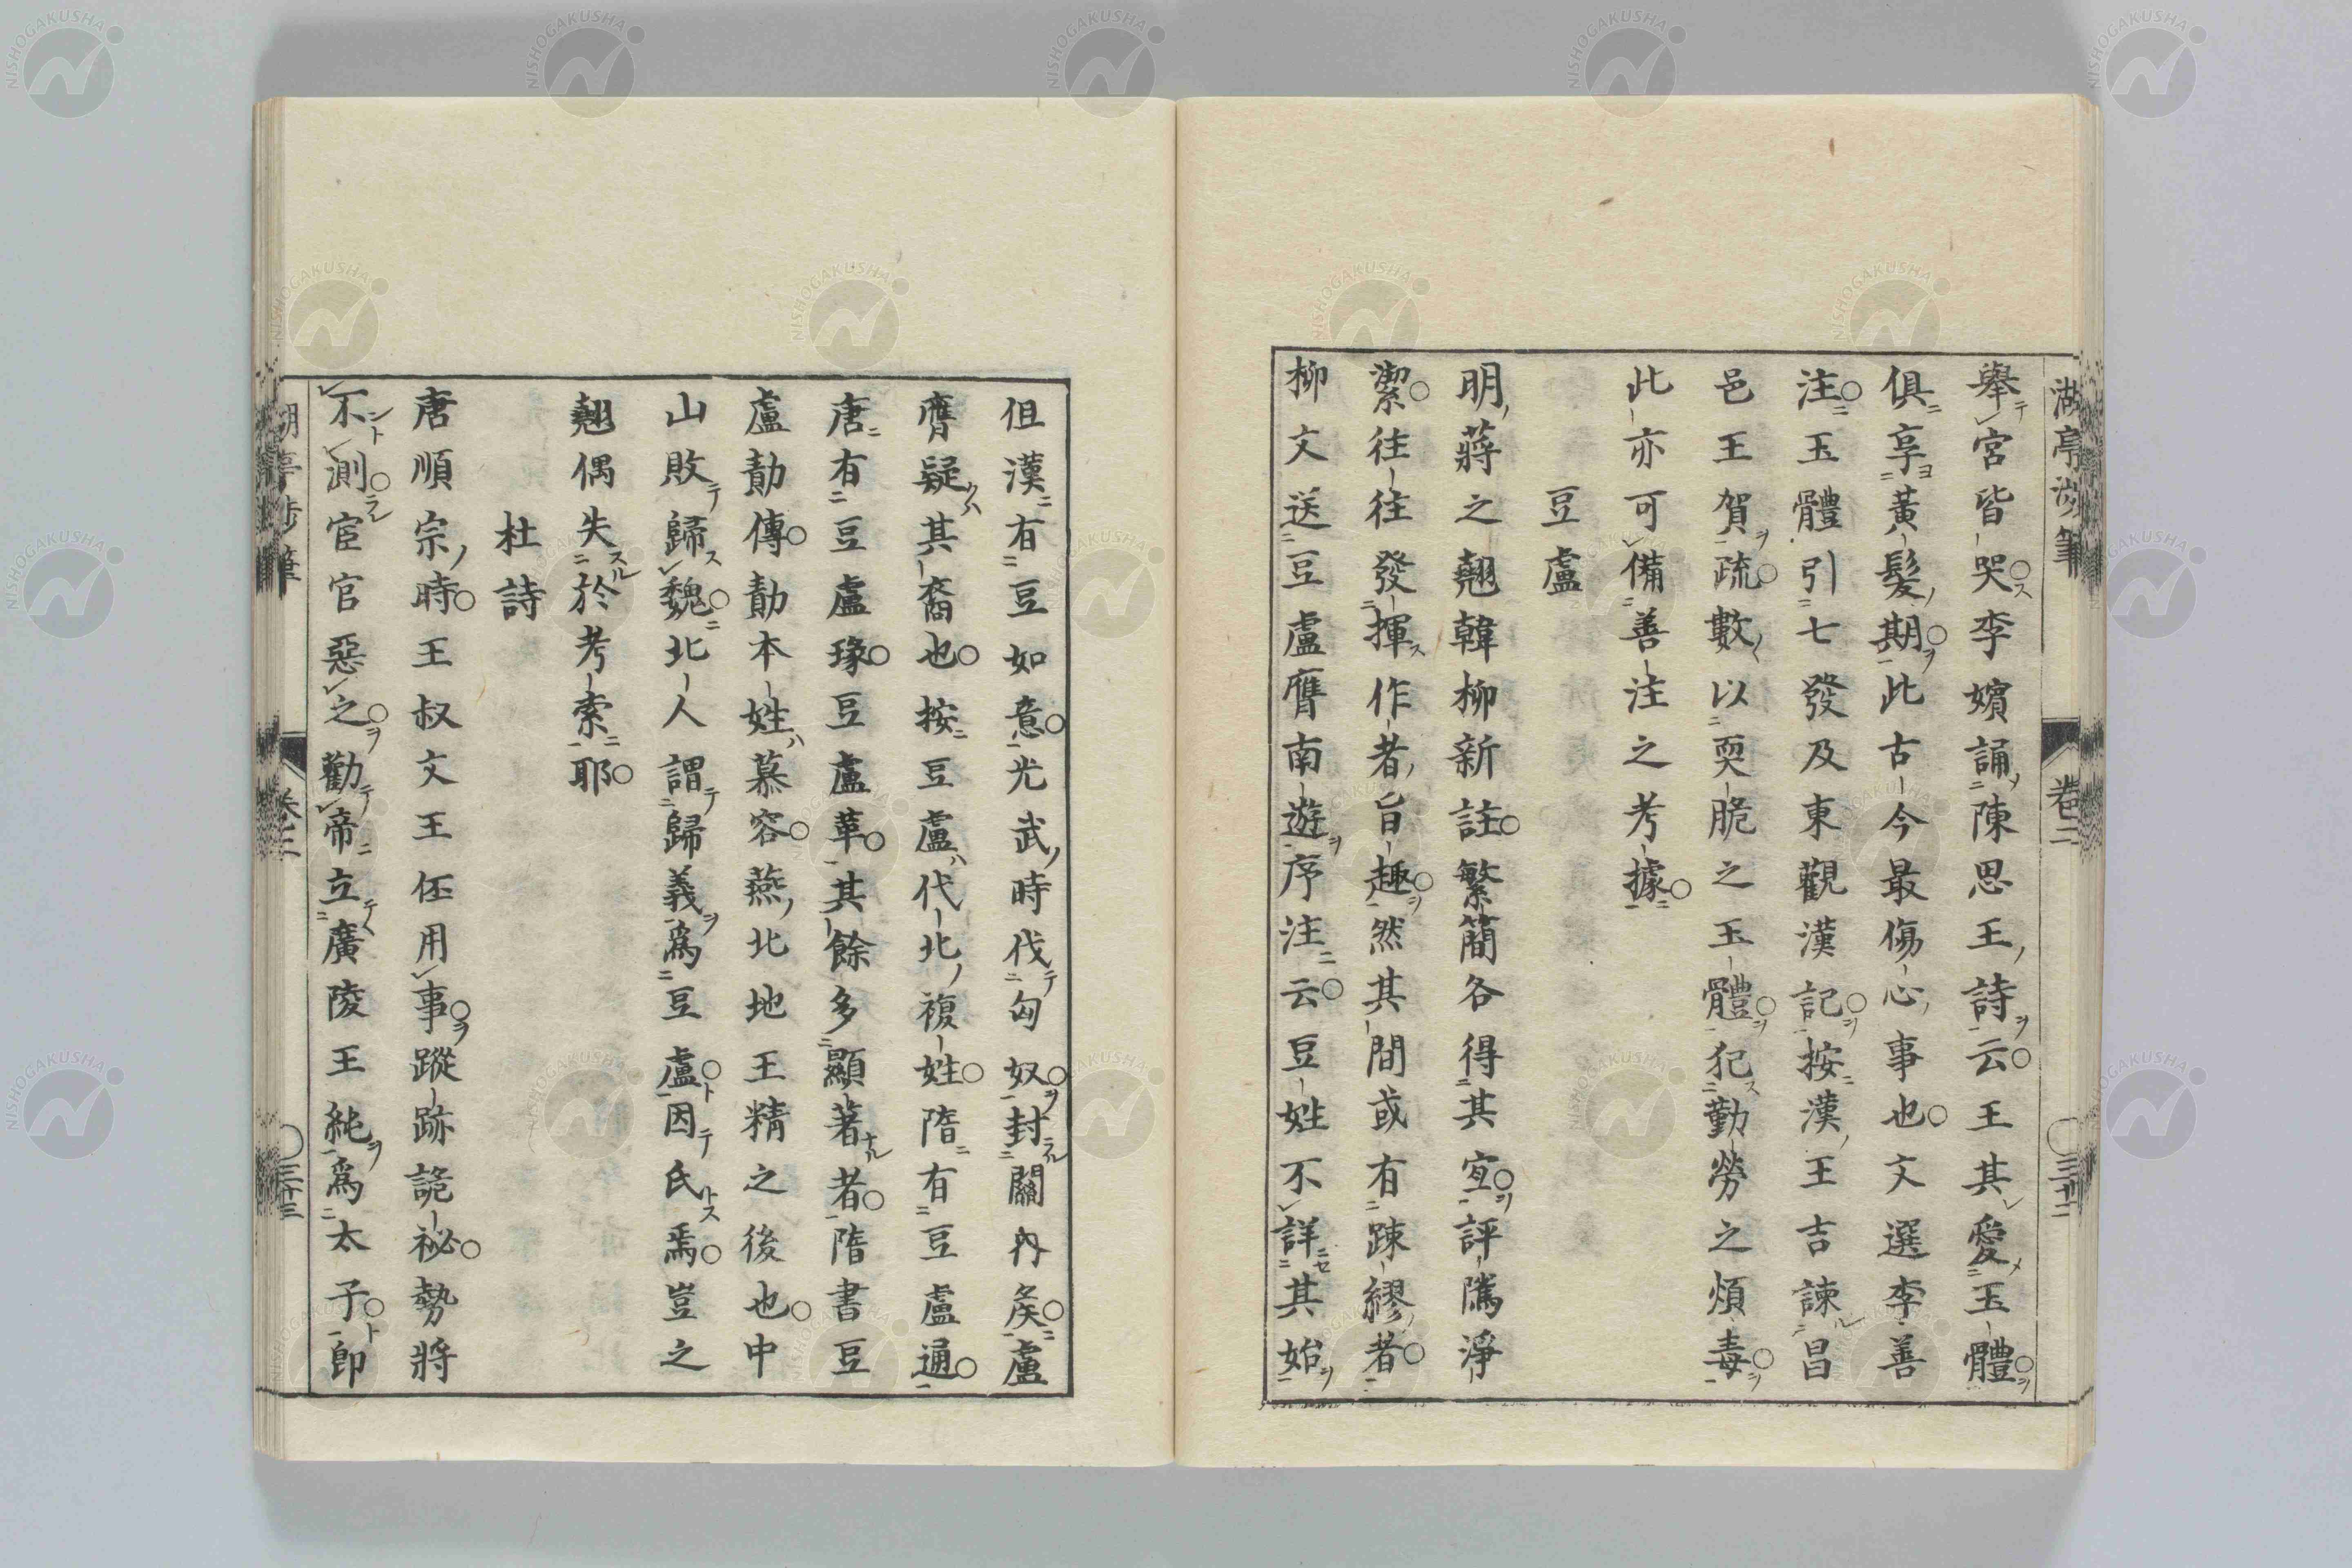 湖亭涉筆 卷二 〇三十二
舉宮皆哭李嬪誦陳思王詩云王其愛玉體
俱享黃髮期此古今最傷心事也文選李善
注玉體引七發及東觀漢記按漢王吉諫昌
邑王賀疏數以耎脆之玉體犯勤勞之煩毒
此亦可備善注之考據
豆盧
明蔣之翹韓柳新註繁簡各得其宜評隲淨
潔往往發揮作者旨趣然其間或有踈繆者
柳文送豆盧膺南遊序注云豆姓不詳其始
但漢有豆如意光武時伐匈奴封關內矦盧
膺疑其裔也按豆盧代北複姓隋有豆盧通
唐有豆盧瑑豆盧革其餘多顯著者隋書豆
盧勣傳勣本姓慕容燕北地王精之後也中
山敗歸魏北人謂歸義爲豆盧因氏焉豈之
翹偶失於考索耶
杜詩
唐順宗時王叔文王伾用事蹤跡詭祕勢將
不測宦官惡之勸帝立廣陵王純爲太子卽
湖亭涉筆 卷二 〇三十三
NISHOGAKUSHA